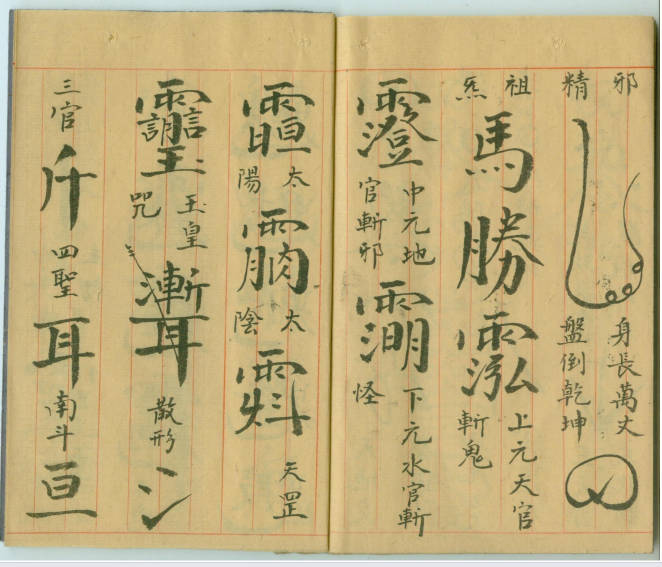 邪精
身長萬丈
盤倒乾坤
祖炁
馬勝
上元天官
斬鬼
中元地
官斬邪
下元水官斬
怪
太陽
太陰
天罡
玉皇
咒
散形
三官
四聖
耳
南斗
亘